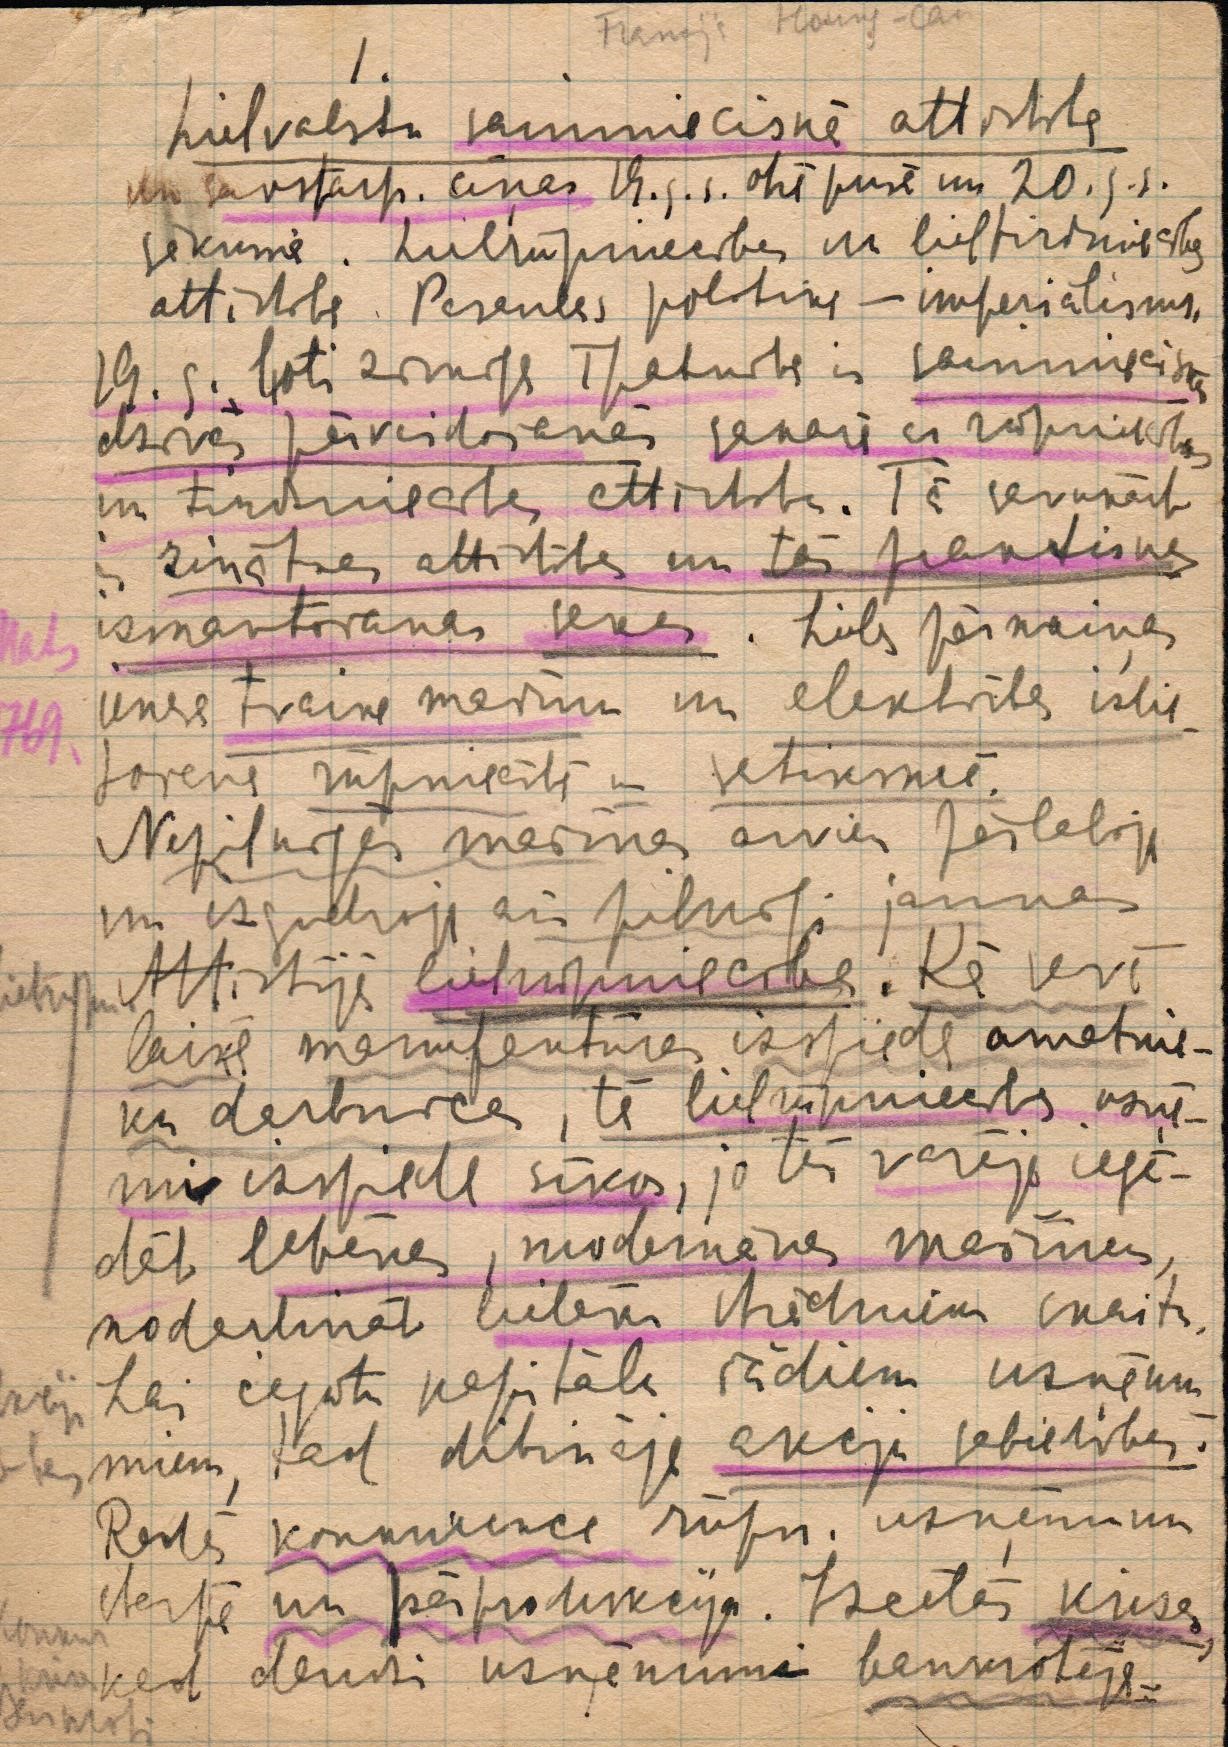 1.
Lielvalstu saimnieciskā attīstība
un savstarp. cīņas 19. g.s. otrā pusē un 20. g.s.
sākumā. Lielrūpniecības un lieltirdzniecības
attīstība. Pasaules politika – imperiālisms.
19. g. ļoti zīmīga īpatnība ir saimnieciskās
dzīves pārveidošanās sakarā ar rūpniecības
un tirdzniecības attīstību. Tā savukārt
ir zinātnes attīstības un tās praktiskās
izmantošanas sekas. Lielas pārmaiņas
ienesa tvaika mašīnu un elektrības izlie-
tošana rūpniecībā un satiksmē.
Nepilnīgās mašīnas arvien pārlaboja
un izgudroja arī pilnīgi jaunas
Attīstījās lielrūpniecība. Kā savā
laikā manufaktūras izspieda amatnie-
ku darbnīcas, tā lielrūpniecības uzņē-
mumi izspieda sīkos, jo tās varēja iegā-
dāt labākas, modernākas mašīnas,
nodarbināt lielāku strādnieku skaitu.
Lai iegūtu kapitālu šādiem uzņēmu
miem, tad dibināja akciju sabiedrības.
Radās konkurence rūpn. uzņēmumu
starpā un pārprodukcija. Izcēlās krīzes,
kad daudzi uzņēmumi bankrotēja.